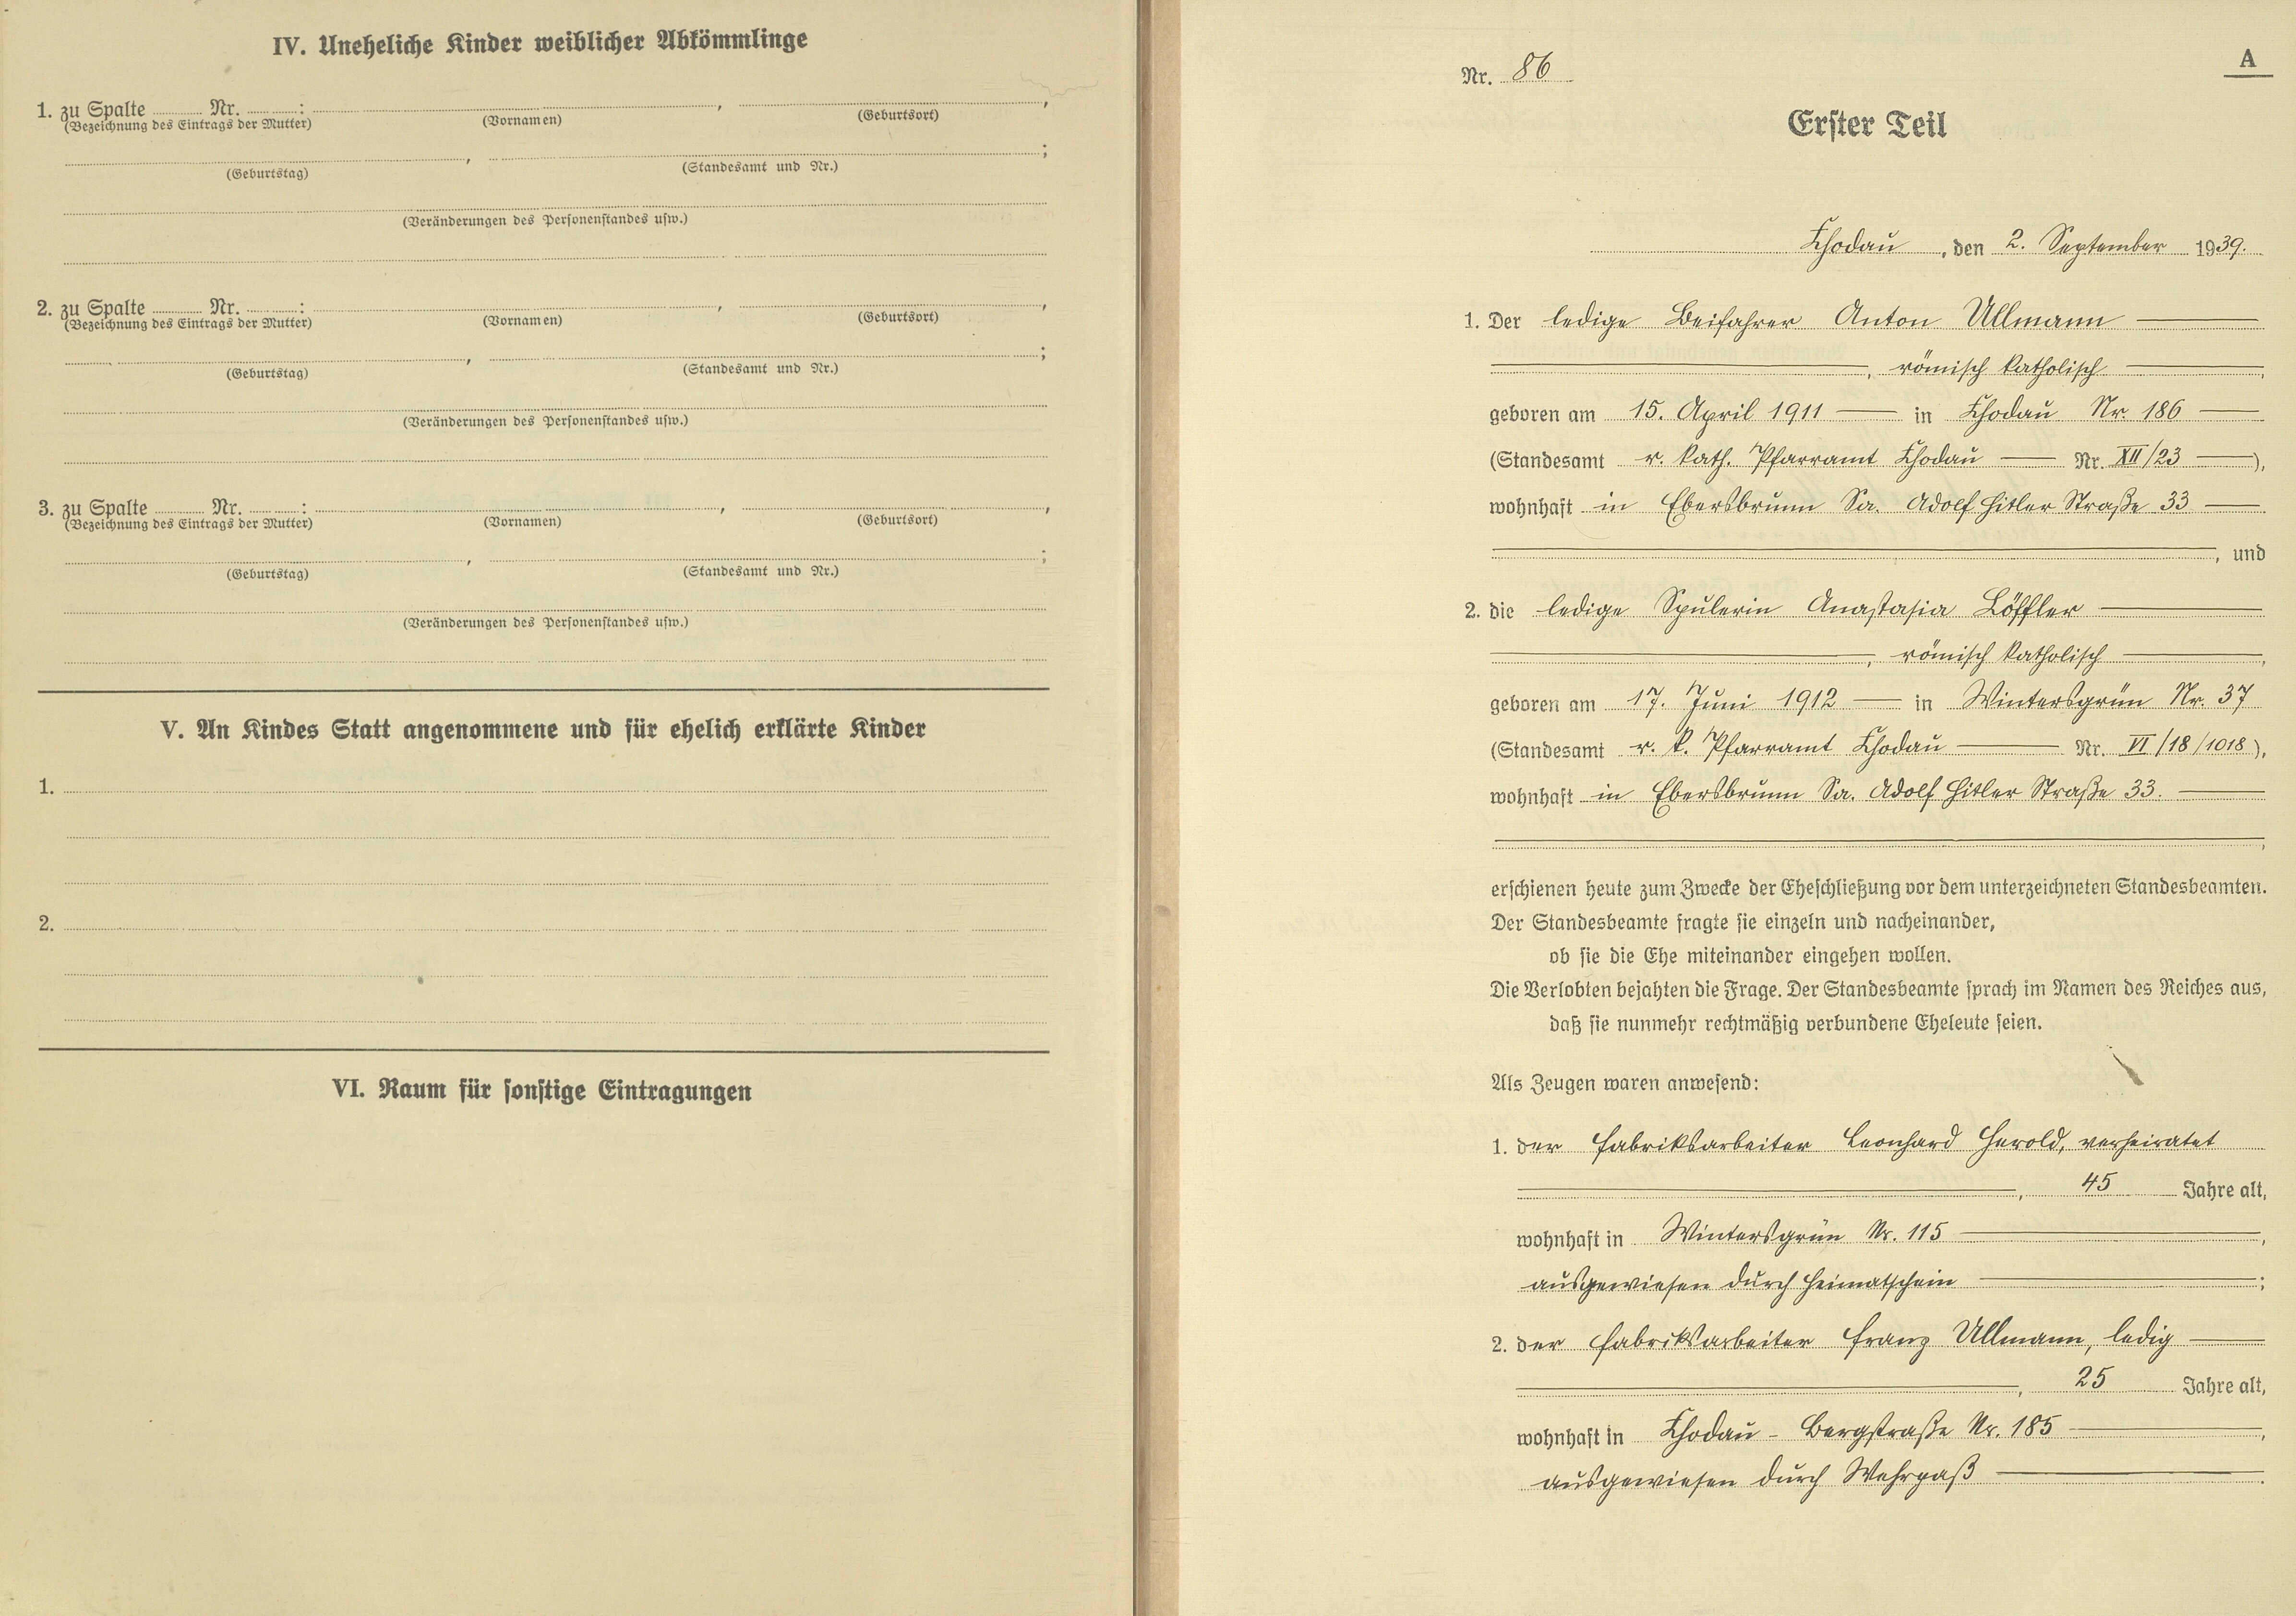 IV. Uneheliche Kinder weiblicher Abkömmlinge
1. zu Spalte ........ Nr. ........:
(Bezeichnung des Eintrags der Mutter) (Vornamen) (Geburtsort)
(Geburtstag) (Standesamt und Nr.)
(Veränderungen des Personenstandes usw.)
2. zu Spalte ........ Nr. ........:
(Bezeichnung des Eintrags der Mutter) (Vornamen) (Geburtsort)
(Geburtstag) (Standesamt und Nr.)
(Veränderungen des Personenstandes usw.)
3. zu Spalte ........ Nr. ........:
(Bezeichnung des Eintrags der Mutter) (Vornamen) (Geburtsort)
(Geburtstag) (Standesamt und Nr.)
(Veränderungen des Personenstandes usw.)
V. An Kindes Statt angenommene und für ehelich erklärte Kinder
1.
2.
VI. Raum für sonstige Eintragungen
A
Nr. 86
Erster Teil
Chodau, den 2. September 1939.
1. Der ledige Beifahrer Anton Ullmann
, römisch katholisch,
geboren am 15. April 1911 — in Chodau Nr. 186
(Standesamt r. kath. Pfarramt Chodau — Nr. XII/23 —),
wohnhaft in Ebersbrunn Sa. Adolf Hitler Straße 33
, und
2. die ledige Spulerin Anastasia Löffler
, römisch katholisch,
geboren am 17. Juni 1912 — in Wintersgrün Nr. 37
(Standesamt r. k. Pfarramt Chodau — Nr. VI/18/1018),
wohnhaft in Ebersbrunn Sa. Adolf Hitler Straße 33.
,
erschienen heute zum Zwecke der Eheschließung vor dem unterzeichneten Standesbeamten.
Der Standesbeamte fragte sie einzeln und nacheinander,
ob sie die Ehe miteinander eingehen wollen.
Die Verlobten bejahten die Frage. Der Standesbeamte sprach im Namen des Reiches aus,
daß sie nunmehr rechtmäßig verbundene Eheleute seien.
Als Zeugen waren anwesend:
1. der Fabriksarbeiter Leonhard Herold, verheiratet
, 45 Jahre alt,
wohnhaft in Wintersgrün Nr. 115 —,
ausgewiesen durch Heimatschein —;
2. der Fabriksarbeiter Franz Ullmann, ledig
, 25 Jahre alt,
wohnhaft in Chodau - Bergstraße Nr. 185 —,
ausgewiesen durch Wehrpaß —.